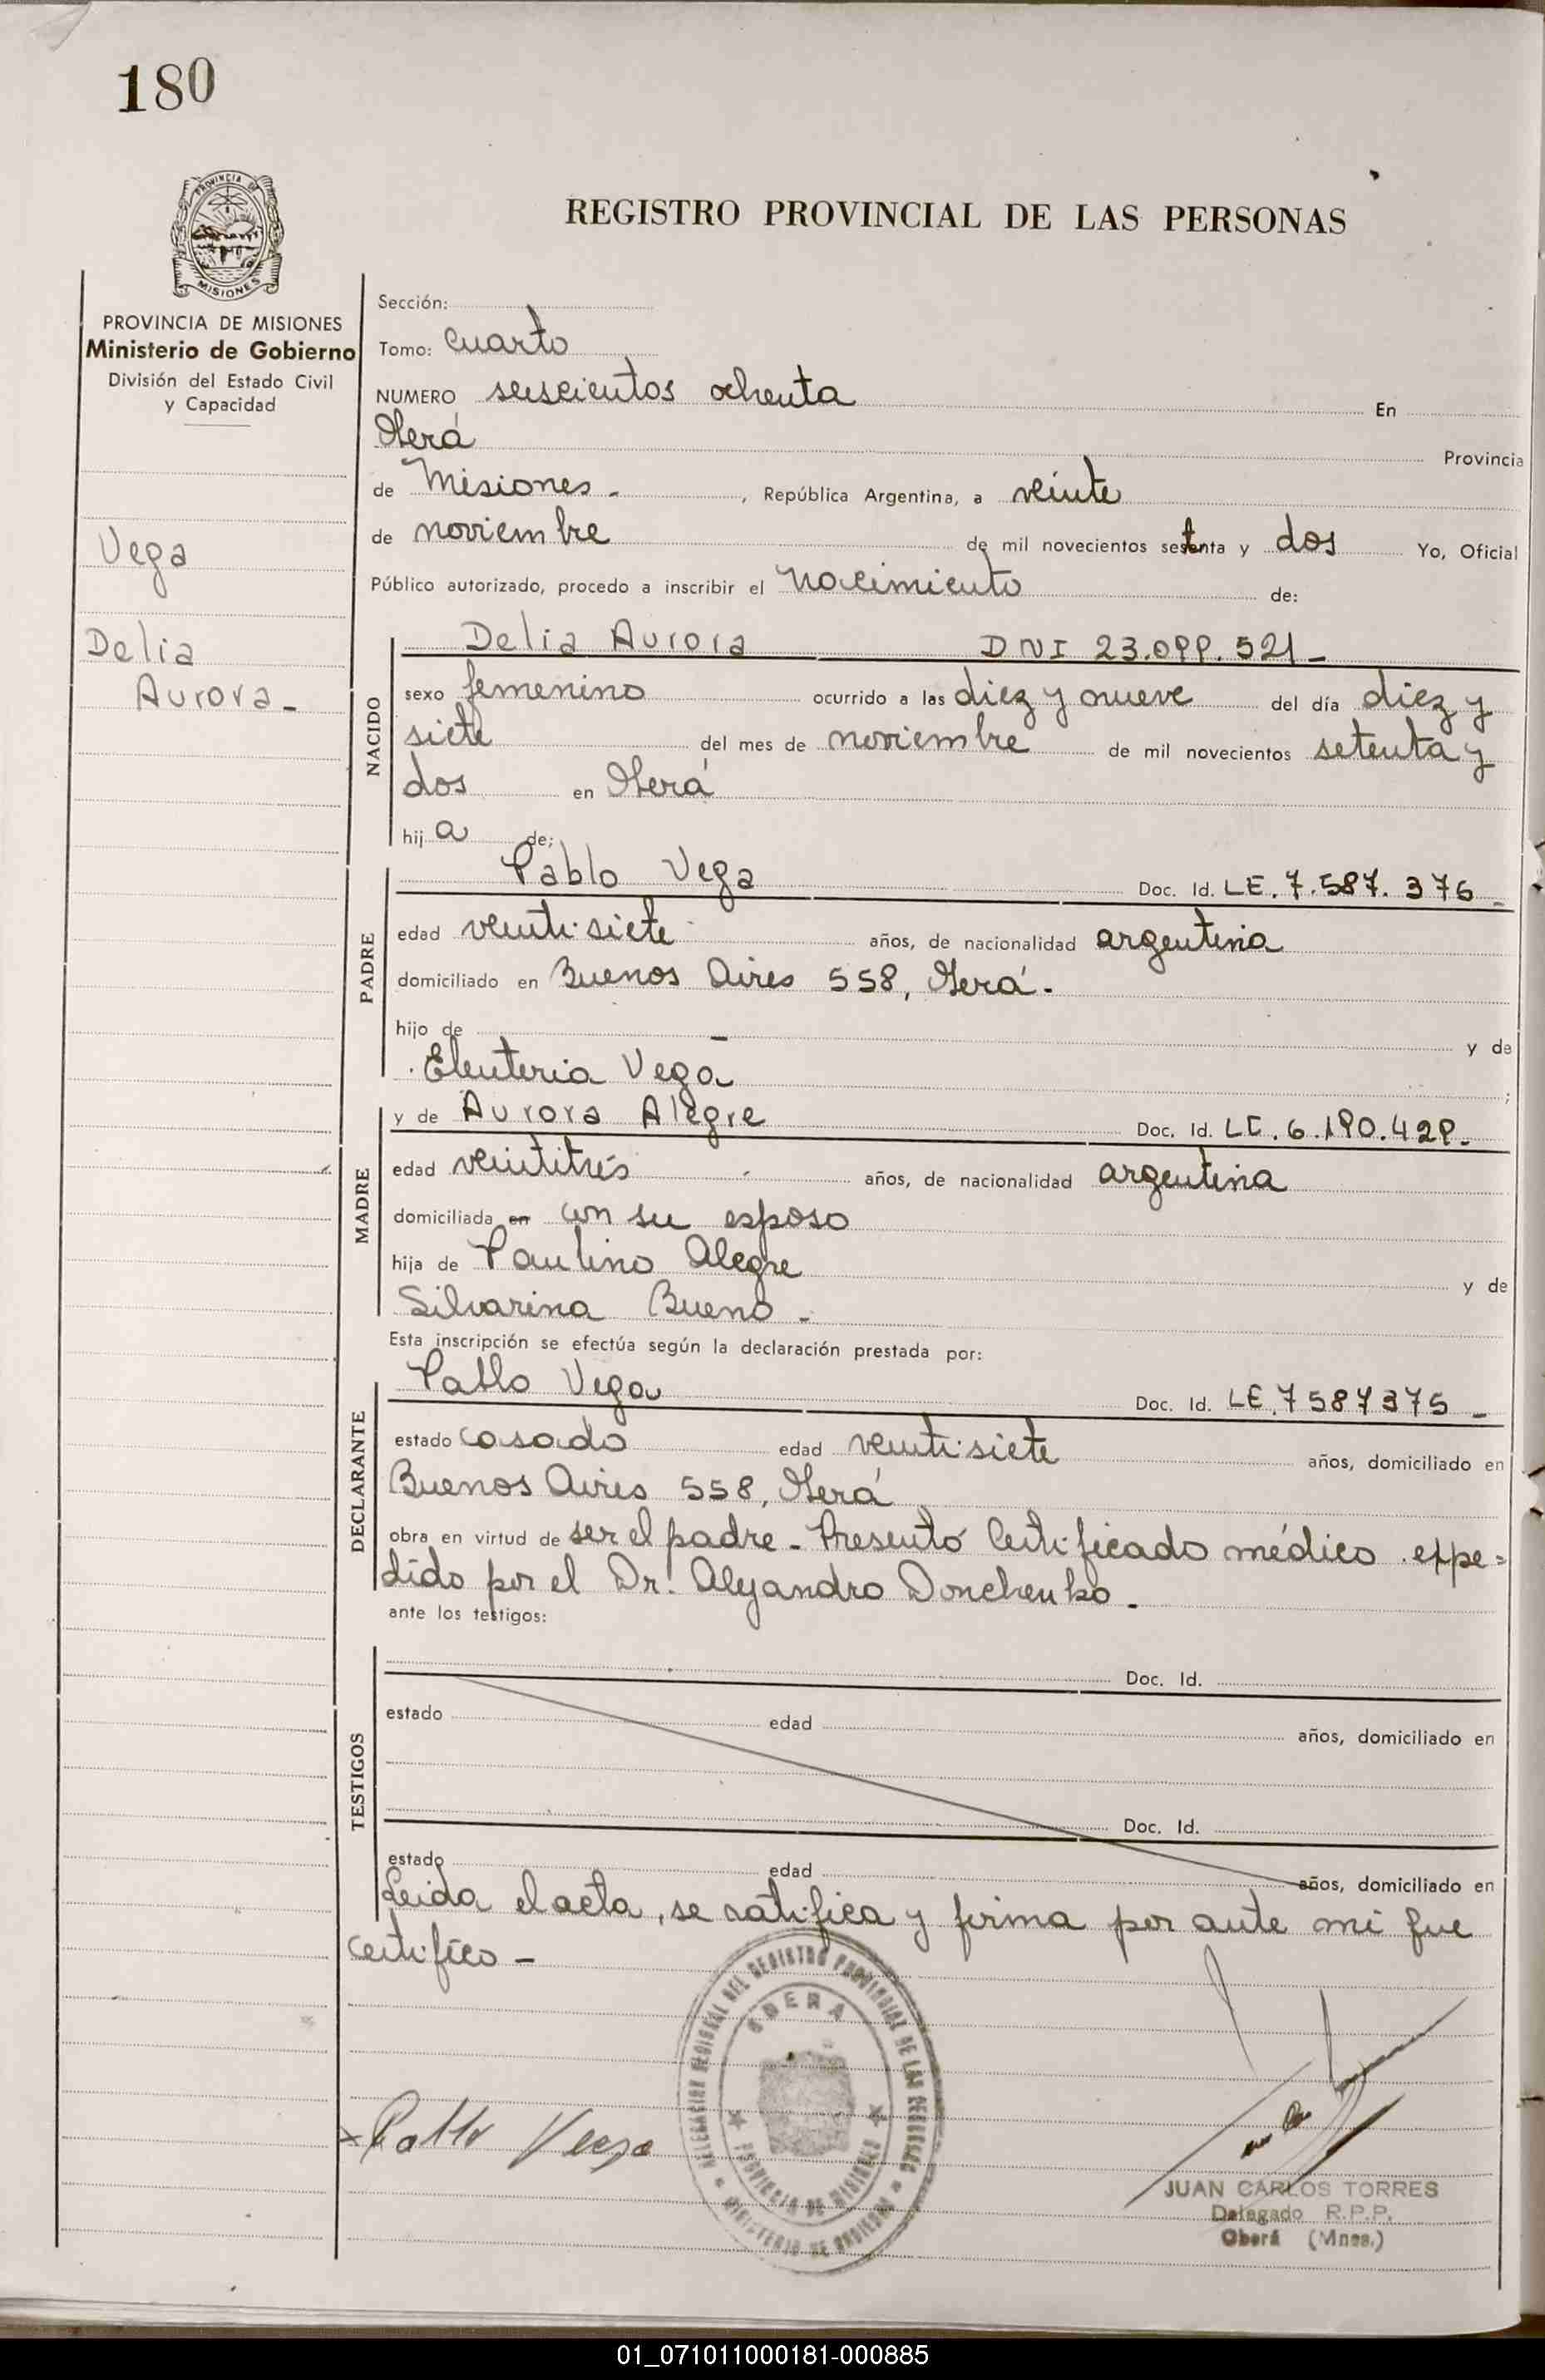 180
PROVINCIA DE
MISIONES
REGISTRO PROVINCIAL DE LAS PERSONAS
PROVINCIA DE MISIONES
Ministerio de Gobierno
División del Estado Civil
y Capacidad
Vega
Delia
Aurora -
Sección:
Tomo: Cuarto
NUMERO seiscientos ochenta En
Oberá Provincia
de Misiones - , República Argentina, a veinte
de noviembre de mil novecientos setenta y dos Yo, Oficial
Público autorizado, procedo a inscribir el nacimiento de:
NACIDO
Delia Aurora DNI 23.099.521 -
sexo femenino ocurrido a las diez y nueve del día diez y
siete del mes de noviembre de mil novecientos setenta y
dos en Oberá
hij a de;
PADRE
Pablo Vega Doc. Id. LE. 7.587.376 -
edad veintisiete años, de nacionalidad argentina
domiciliado en Buenos Aires 558, Oberá -
hijo de — y de
Eleuteria Vega ;
MADRE
y de Aurora Alegre Doc. Id. LC. 6.190.429 -
edad veintitrés años, de nacionalidad argentina
domiciliada en con su esposo
hija de Paulino Alegre y de
Silvarina Bueno -
Esta inscripción se efectúa según la declaración prestada por:
DECLARANTE
Pablo Vega Doc. Id. LE. 7587375 -
estado casado edad veintisiete años, domiciliado en
Buenos Aires 558, Oberá
obra en virtud de ser el padre - Presentó Certificado médico expe=
dido por el Dr. Alejandro Donchenko -
ante los testigos:
TESTIGOS
Doc. Id.
estado edad años, domiciliado en
Doc. Id.
estado edad años, domiciliado en
Leida el acta, se ratifica y firma por ante mi que
certifico -
DELEGACION REGIONAL DEL REGISTRO PROVINCIAL DE LAS PERSONAS
OBERA
PROVINCIA DE MISIONES
MINISTERIO DE GOBIERNO
x Pablo Vega
JUAN CARLOS TORRES
Delegado R.P.P.
Oberá (Mnes.)
01_071011000181-000885